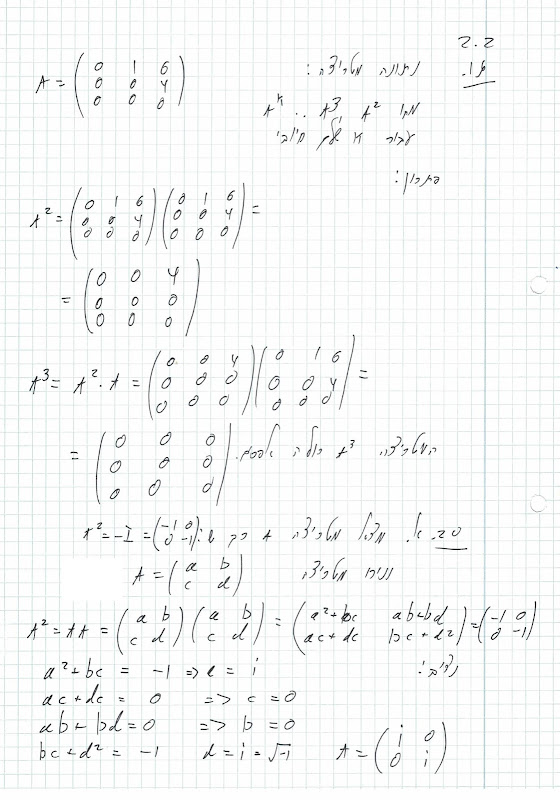 2.2
נתונה מטריצה: .16
A = ( 0 1 6
0 0 4
0 0 0 )
מהו A² A³ .. Aᴷ
עבור K שלם חיובי
פתרון:
A² = ( 0 1 6
0 0 4
0 0 0 ) ( 0 1 6
0 0 4
0 0 0 ) =
= ( 0 0 4
0 0 0
0 0 0 )
A³ = A² · A = ( 0 0 4
0 0 0
0 0 0 ) ( 0 1 6
0 0 4
0 0 0 ) =
= ( 0 0 0
0 0 0
0 0 0 ) המטריצה A³ כולה אפסים.
20. א. מצא מטריצה A כך ש: A² = -I = ( -1 0
0 -1 )
נניח מטריצה A = ( a b
c d )
A² = AA = ( a b
c d ) ( a b
c d ) = ( a²+bc ab+bd
ac+dc bc+d² ) = ( -1 0
0 -1 )
נציב:
a²+bc = -1 => a = i
ac+dc = 0 => c = 0
ab+bd = 0 => b = 0
bc+d² = -1 d = i = √-1 A = ( i 0
0 i )